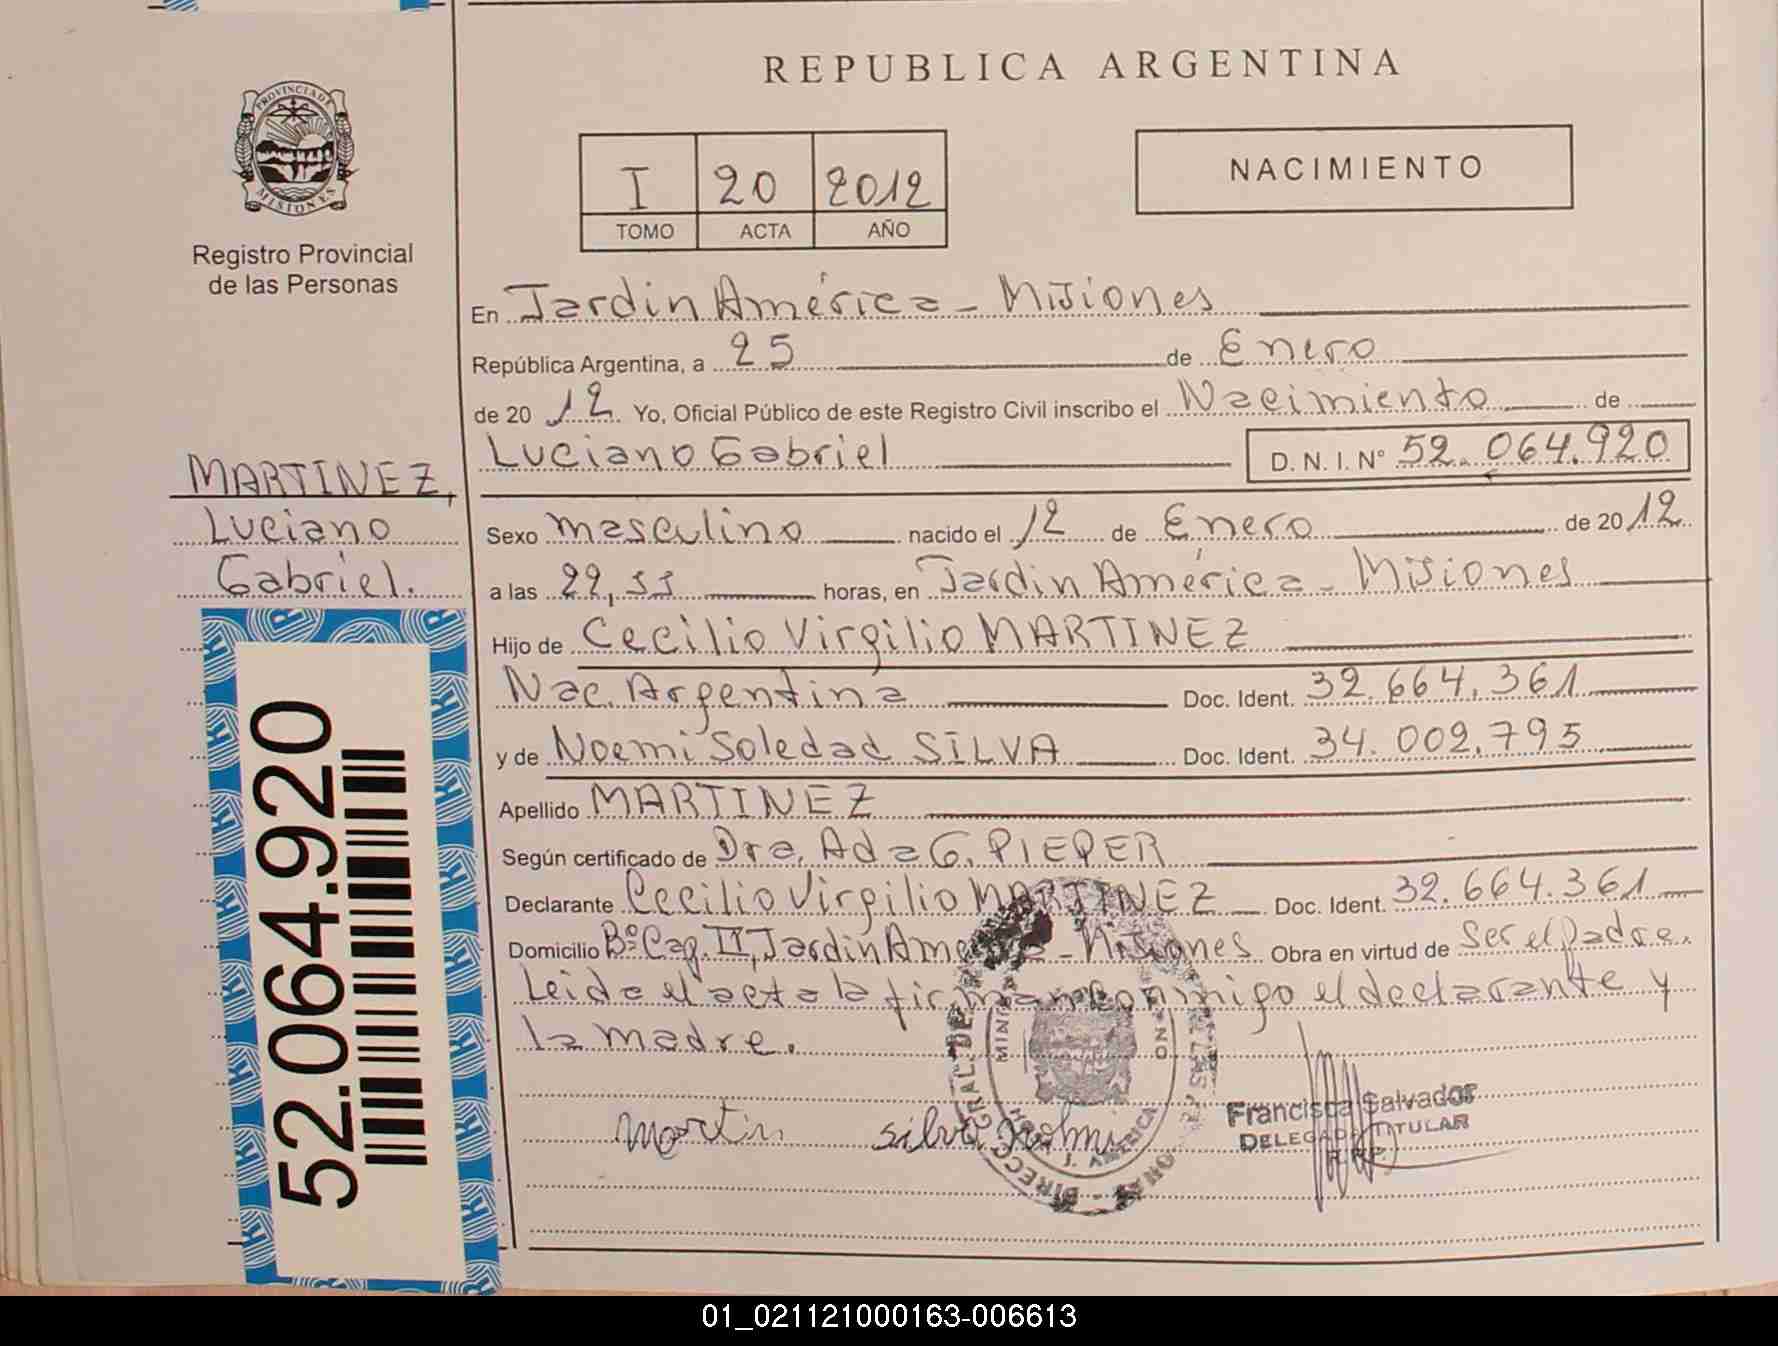 REPUBLICA ARGENTINA
PROVINCIA DE
MISIONES
Registro Provincial
de las Personas
I 20 2012
TOMO ACTA AÑO
NACIMIENTO
En Jardin América - Misiones
República Argentina, a 25 de Enero
de 20 12 Yo, Oficial Público de este Registro Civil inscribo el Nacimiento de
Luciano Gabriel D. N. I. N° 52.064.920
MARTINEZ,
Luciano
Gabriel.
Sexo masculino nacido el 12 de Enero de 2012
a las 22,55 horas, en Jardin América - Misiones
Hijo de Cecilio Virgilio MARTINEZ
Nac. Argentina Doc. Ident. 32.664.361
y de Noemi Soledad SILVA Doc. Ident. 34.002.795
Apellido MARTINEZ
Según certificado de Dra. Ada G. PIEPER
Declarante Cecilio Virgilio MARTINEZ Doc. Ident. 32.664.361
Domicilio B° Cap. II, Jardin América - Misiones Obra en virtud de Ser el Padre.
Leida el acta la firman conmigo el declarante y
la madre.
52.064.920
Martin Silva Nohmi
Francisca Salvador
DELEGADA TITULAR
R.R.P.
01_021121000163-006613